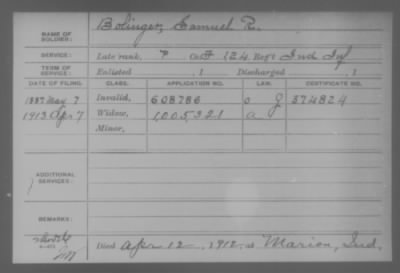 NAME OF SOLDIER: Bolinger, Samuel R.
SERVICE: Late rank, P Co. F 124 Reg't Ind Inf
TERM OF SERVICE: Enlisted , 1 Discharged , 1
DATE OF FILING. CLASS. APPLICATION NO. LAW. CERTIFICATE NO.
1887 May 7 Invalid, 608786 G 374824
1913 Apr 7 Widow, 1,005,321 a
Minor,
ADDITIONAL SERVICES:
REMARKS:
Died Apr 12, 1912, at Marion, Ind.